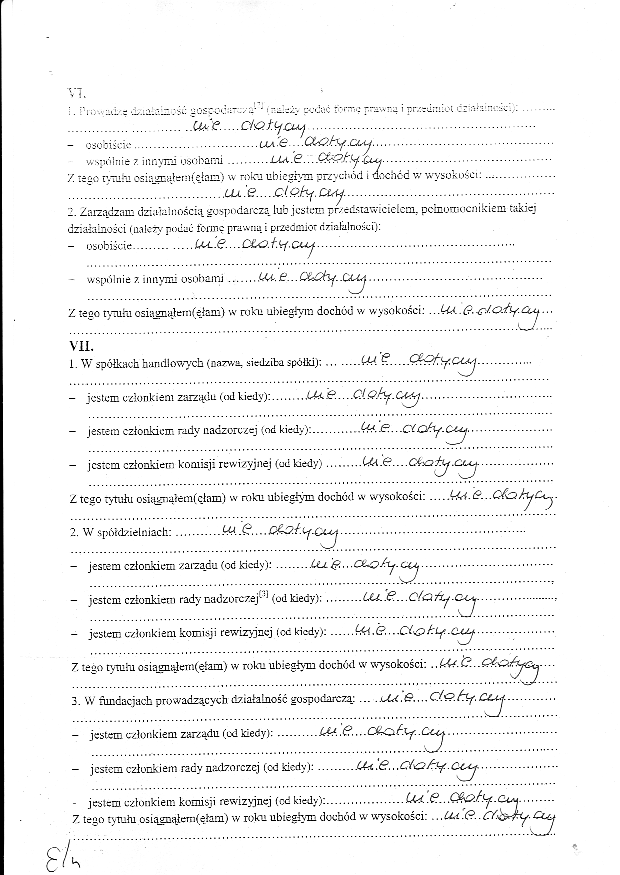 VI.
1. Prowadzę działalność gospodarczą[2] (należy podać formę prawną i przedmiot działalności): ..........
nie dotyczy
– osobiście nie dotyczy
– wspólnie z innymi osobami nie dotyczy
Z tego tytułu osiągnąłem(ęłam) w roku ubiegłym przychód i dochód w wysokości: ..........
nie dotyczy
2. Zarządzam działalnością gospodarczą lub jestem przedstawicielem, pełnomocnikiem takiej
działalności (należy podać formę prawną i przedmiot działalności):
– osobiście nie dotyczy
– wspólnie z innymi osobami nie dotyczy
Z tego tytułu osiągnąłem(ęłam) w roku ubiegłym dochód w wysokości: nie dotyczy
VII.
1. W spółkach handlowych (nazwa, siedziba spółki): nie dotyczy
– jestem członkiem zarządu (od kiedy): nie dotyczy
– jestem członkiem rady nadzorczej (od kiedy): nie dotyczy
– jestem członkiem komisji rewizyjnej (od kiedy) nie dotyczy
Z tego tytułu osiągnąłem(ęłam) w roku ubiegłym dochód w wysokości: nie dotyczy
2. W spółdzielniach: nie dotyczy
– jestem członkiem zarządu (od kiedy): nie dotyczy
– jestem członkiem rady nadzorczej[3] (od kiedy): nie dotyczy
– jestem członkiem komisji rewizyjnej (od kiedy): nie dotyczy
Z tego tytułu osiągnąłem(ęłam) w roku ubiegłym dochód w wysokości: nie dotyczy
3. W fundacjach prowadzących działalność gospodarczą: nie dotyczy
– jestem członkiem zarządu (od kiedy): nie dotyczy
– jestem członkiem rady nadzorczej (od kiedy): nie dotyczy
- jestem członkiem komisji rewizyjnej (od kiedy): nie dotyczy
Z tego tytułu osiągnąłem(ęłam) w roku ubiegłym dochód w wysokości: nie dotyczy